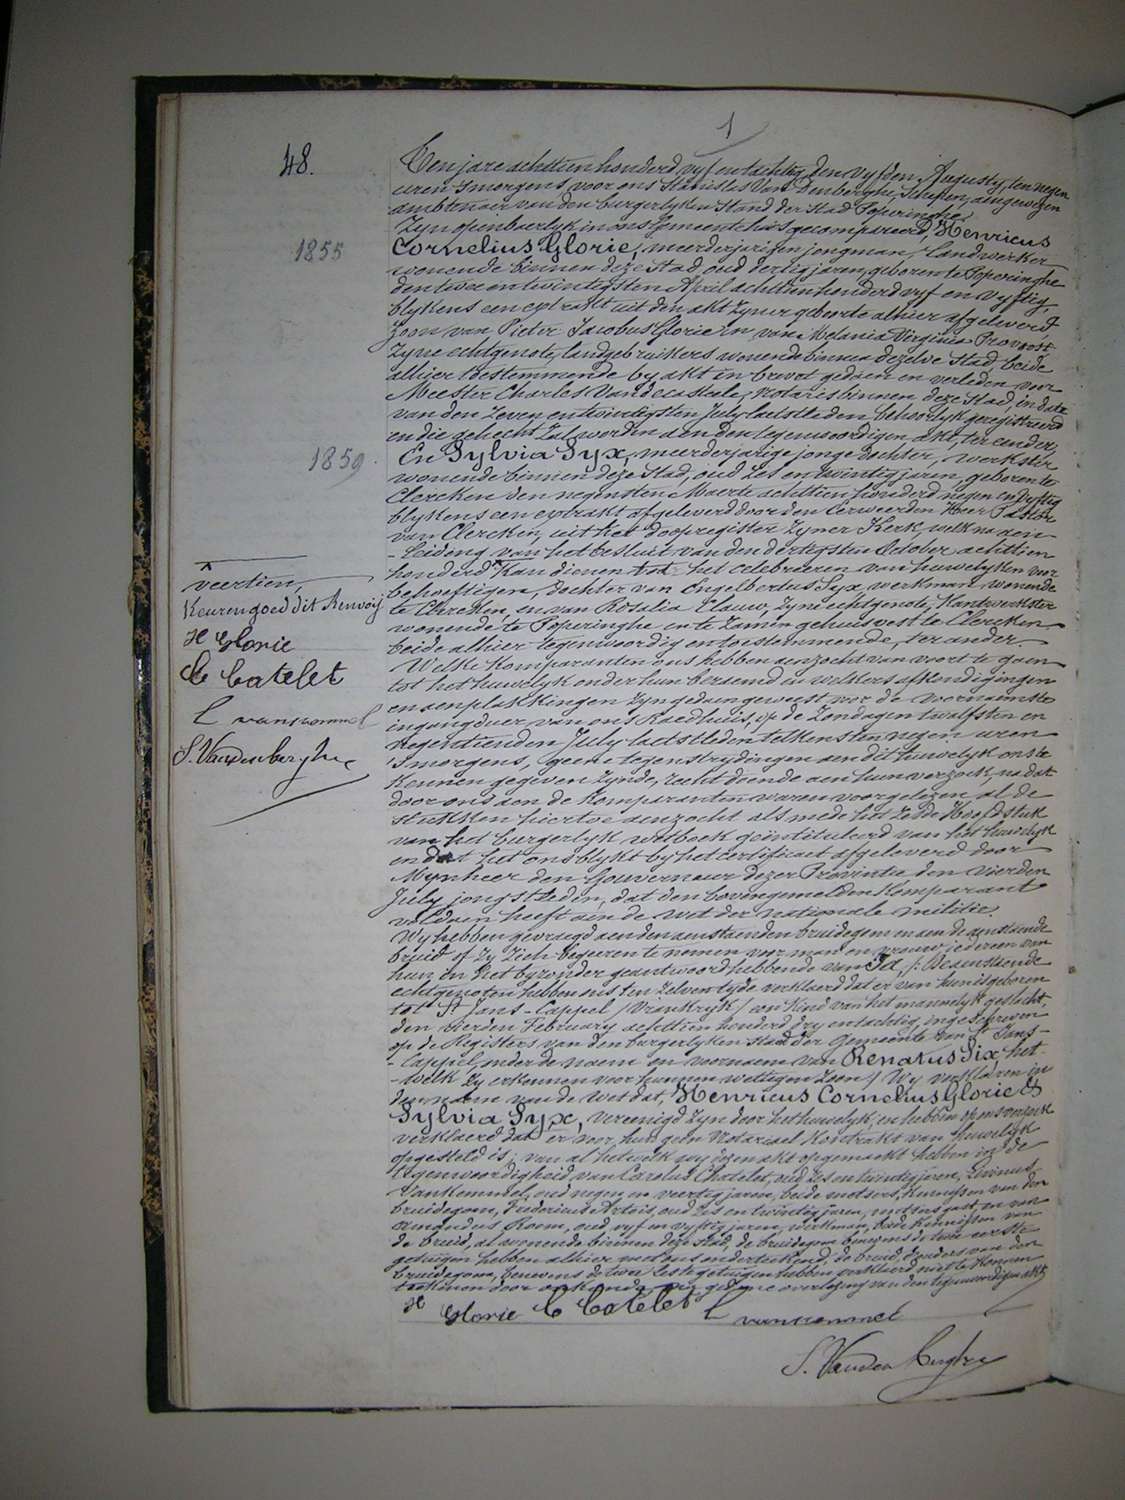 1
48.
Ten jare achttien honderd vyf en tachtig, den vyfden Augusty, ten negen
uren 's morgens voor ons Stanislas Van Denberghe, Schepen, aangewezen
ambtenaer van den burgerlyken Stand der Stad Poperinghe,
Zyn openbaerlyk in ons Gemeentehuis gecompareerd, Henricus
1855
Cornelius Glorie, meerderjarigen jongman, Landwerker
wonende binnen deze Stad, oud dertig jaren, geboren te Poperinghe
den twee en twintigsten April achttien honderd vyf en vyftig,
blykens een extrakt uit den akt zyner geboorte alhier afgeleverd
Zoon van Pieter Jacobus Glorie en van Melania Virginia Provoost
Zyne echtgenote, landgebruikers wonende binnen dezelve Stad, beide
alhier toestemmende by akt in brevet gedaen en verleden voor
Meester Charles Vandecasteele, Notaris binnen deze Stad, in date
van den Zeven en twintigsten July laetstleden, behoorlyk geregistreerd
en die gehecht Zal worden aen den tegenwoordigen akt, ter eender,
1859.
En Sylvia Syx, meerderjarige jonge dochter, werkster
wonende binnen deze Stad, oud Zes en twintig jaren, geboren te
Clercken den negensten Maerte achttien honderd negen en vyftig
blykens een extrakt afgeleverd door den Eerweerden Heer Pastor
van Clercken, uit het doopregister Zyner Kerk, welk na aen
-leiding van het besluit van den dertigsten October achttien
honderd ^ Kan dienen tot het celebreeren van huwelyken voor
behoeftigen, dochter van Engelbertus Syx, werkman, wonende
te Clercken, en van Rosalia Clauw, Zyne echtgenote, Kantwerkster
wonende te Poperinghe en te Zamen gehuisvest te Clercken
beide alhier tegenwoordig en toestemmende, ter ander.
^
veertien,
Keuren goed dit Renvoij
H Glorie
C Catelet
L vankemmel
S. Vandenberghe
Welke komparanten ons hebben aenzocht van voort te gaen
tot het huwelyk onder hun beraemd en welkers afkondigingen
en aenplakkingen Zyn gedaen geweest voor de voornaemste
ingangdeur van ons Raedhuis, op de Zondagen twalfsten en
negentienden July laetstleden telkens ten negen uren
's morgens, geene tegenstrydingen aen dit huwelyk ons te
kennen gegeven Zynde, recht doende aen hun verzoek, na dat
door ons aen de Komparanten waren voorgelezen al de
stukken hiertoe aenzocht als mede het Zesde Hoofdstuk
van het burgerlyk wetboek geintituleerd van het huwelyk
en dat het ons blykt by het certificaet afgeleverd door
Mynheer den Gouverneur dezer Provintie den vierden
July jongstleden, dat den bovengemelden Komparant
voldaen heeft aen de wet der nationale militie.
Wy hebben gevraegd aen den aenstaenden bruidegom en aen de aenstaende
bruid of Zy Zich begeeren te nemen voor man en vrouw, iedereen van
hun in het byzonder geantwoord hebbende van Ja, /: De aenstaende
echtgenoten hebben ons ten Zelven tyde verklaerd dat er van hun is geboren
tot St Jans-Cappel /Vrankryk/ een Kind van het mannelyk geslacht,
den vierden February achttien honderd dry en tachtig, ingeschreven
op de Registers van den burgerlyken stand der gemeente van St Jans-
-Cappel, onder de naem en voornaem van Renatus Six, het-
-welk Zy erkennen voor hunnen wettigen Zoon:/ Wy verklaren in
den naem van de wet dat, Henricus Cornelius Glorie &
Sylvia Syx, vereenigd Zyn door het huwelyk, en hebben op ons verzoek
verklaerd dat er voor hun geen Notariael Kontrakt van huwelyk
opgesteld is; van al hetwelk wy dezen akt opgemaekt hebben in de
tegenwoordigheid van Carolus Chatelet, oud Zes en twintig jaren, Livinus
Vankemmel, oud negen en veertig jaren, beide metsers, Kennissen van den
bruidegom, Frederic Artois, oud Zes en twintig jaren, metsersgast, en van
Amandus Room, oud vyf en vyftig jaren, werkman, beide Kennissen van
de bruid, al wonende binnen deze stad, de bruidegom benevens de twee eerste
getuigen hebben alhier met ons onderteekend, de bruid, d'ouders van den
bruidegom, benevens de twee leste getuigen hebben verklaerd niet te Konnen
teekenen door onkunde, na gedane overlezing van den tegenwoordigen akt.
H Glorie C Catelet L vankemmel
S. Vandenberghe